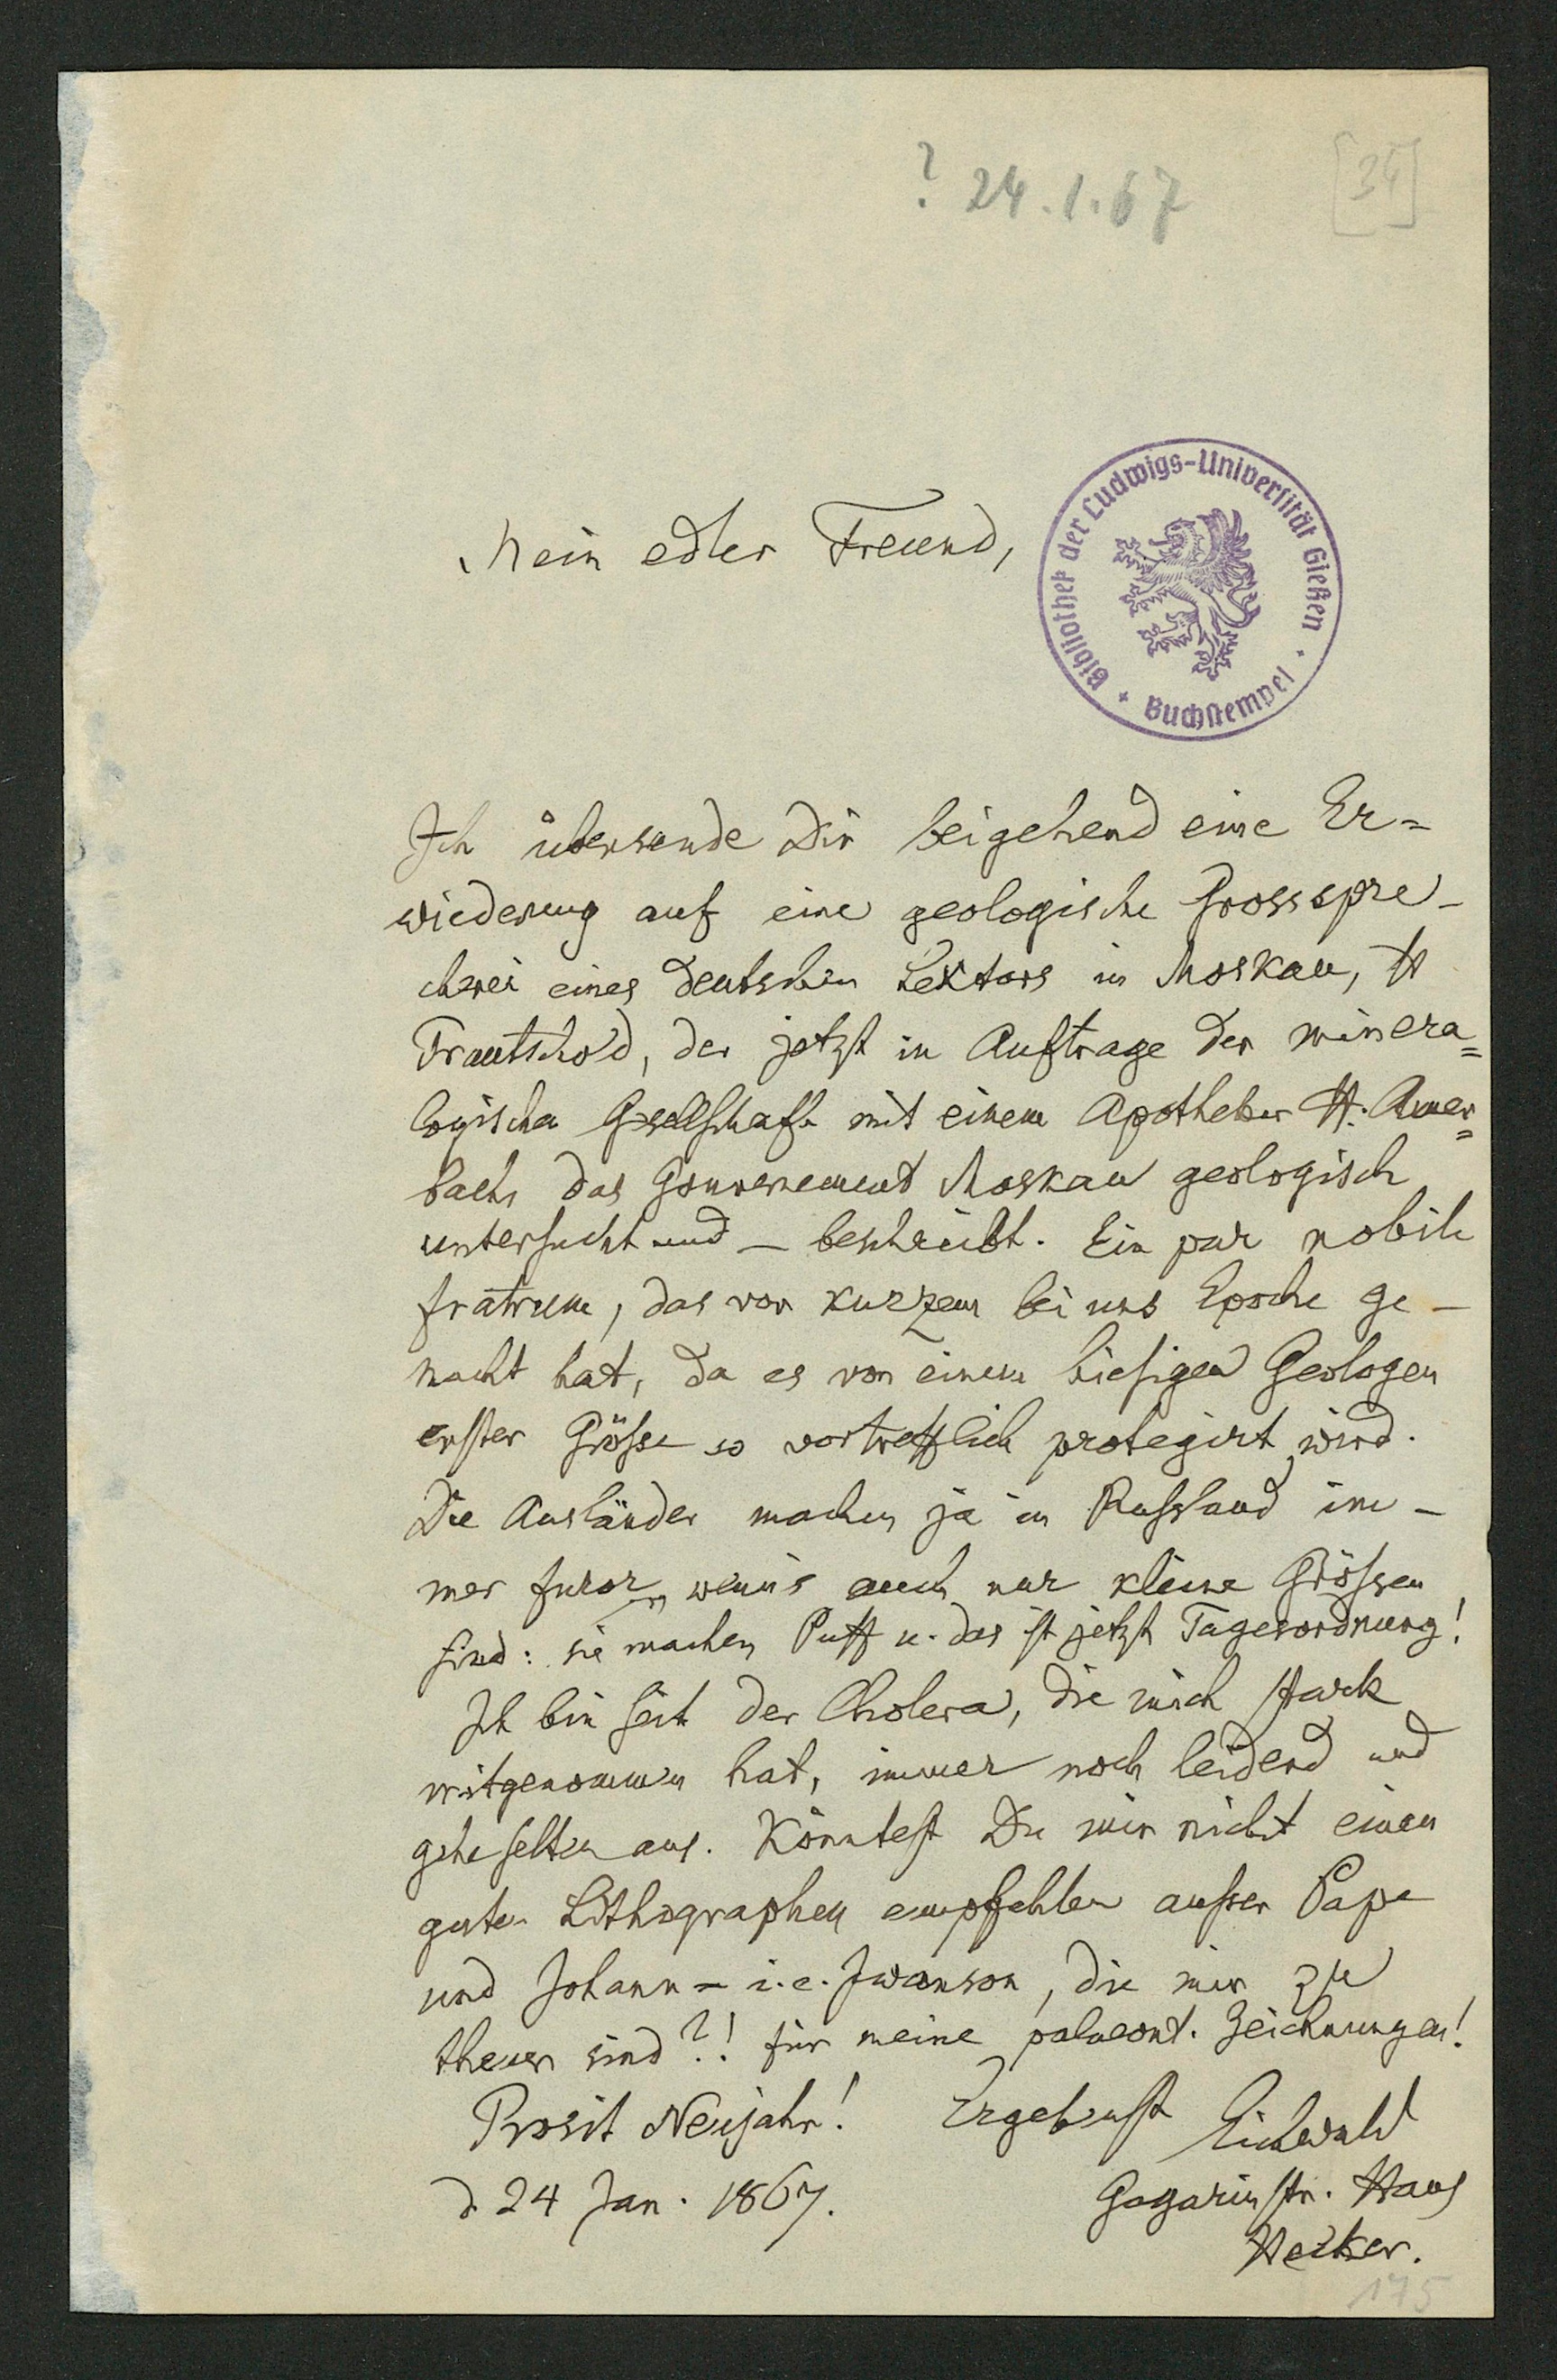 ? 24.1.67 [34]
Bibliothek der Ludwigs-Universität Gießen
Buchstempel
Mein edler Freund,
Ich übersende Dir beigehend eine Er=
wiederung auf eine geologische Grossspre-
cherei eines deutschen Lektors in Moskau, H
Trautschold, der jetzt im Auftrage der minera=
logischen Gesellschaft mit einem Apotheker H. Auer=
bach das Gouvernement Moskau geologisch
untersucht und – beschreibt. Ein par nobile
fratrum, das vor kurzem bei uns Epoche ge-
macht hat, da es von einem hiesigen Geologen
erster Grösse so vortrefflich protegirt wird.
Die Ausländer machen ja in Russland im-
mer furor, wenn's auch nur kleine Grössen
sind: sie machen Puff u. das ist jetzt Tagesordnung!
Ich bin seit der Cholera, die mich stark
mitgenommen hat, immer noch leidend und
gehe selten aus. Könntest Du mir nicht einen
guten Lithographen empfehlen ausser Pape
und Johann- i.e. Iwanson, die mir zu
theuer sind?! für meine palaeont. Zeichnungen!
Prosit Neujahr! Ergebenst Eichwald
d 24 Jan. 1867. Gagarinstr. Haus
Hecker.
175